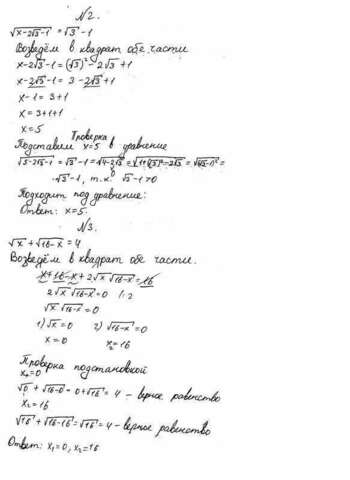 №2.
√x-2√3-1 = √3-1
Возведём в квадрат обе части
x-2√3-1=(√3)²-2√3+1
x-2√3-1 = 3-2√3+1
x-1=3+1
x=3+1+1
x=5
Проверка
Подставим x=5 в уравнение
√5-2√3-1=√3-1=√4-2√3=√1+(√3)²-2√3=√(√3-1)²=
√3-1, т.к. √3-1>0
Подходит под уравнение:
Ответ: x=5.
№3.
√x+√16-x=4
Возведём в квадрат обе части.
x+16-x+2√x √16-x=16
2√x √16-x=0 /:2
√x √16-x=0
1) √x=0 2) √16-x=0
x=0 x₂=16
Проверка подстановкой
x₁=0
√0+√16-0=0+√16=4 - верное равенство
x₂=16
√16+√16-16=√16=4 - верное равенство
Ответ: x₁=0, x₂=16